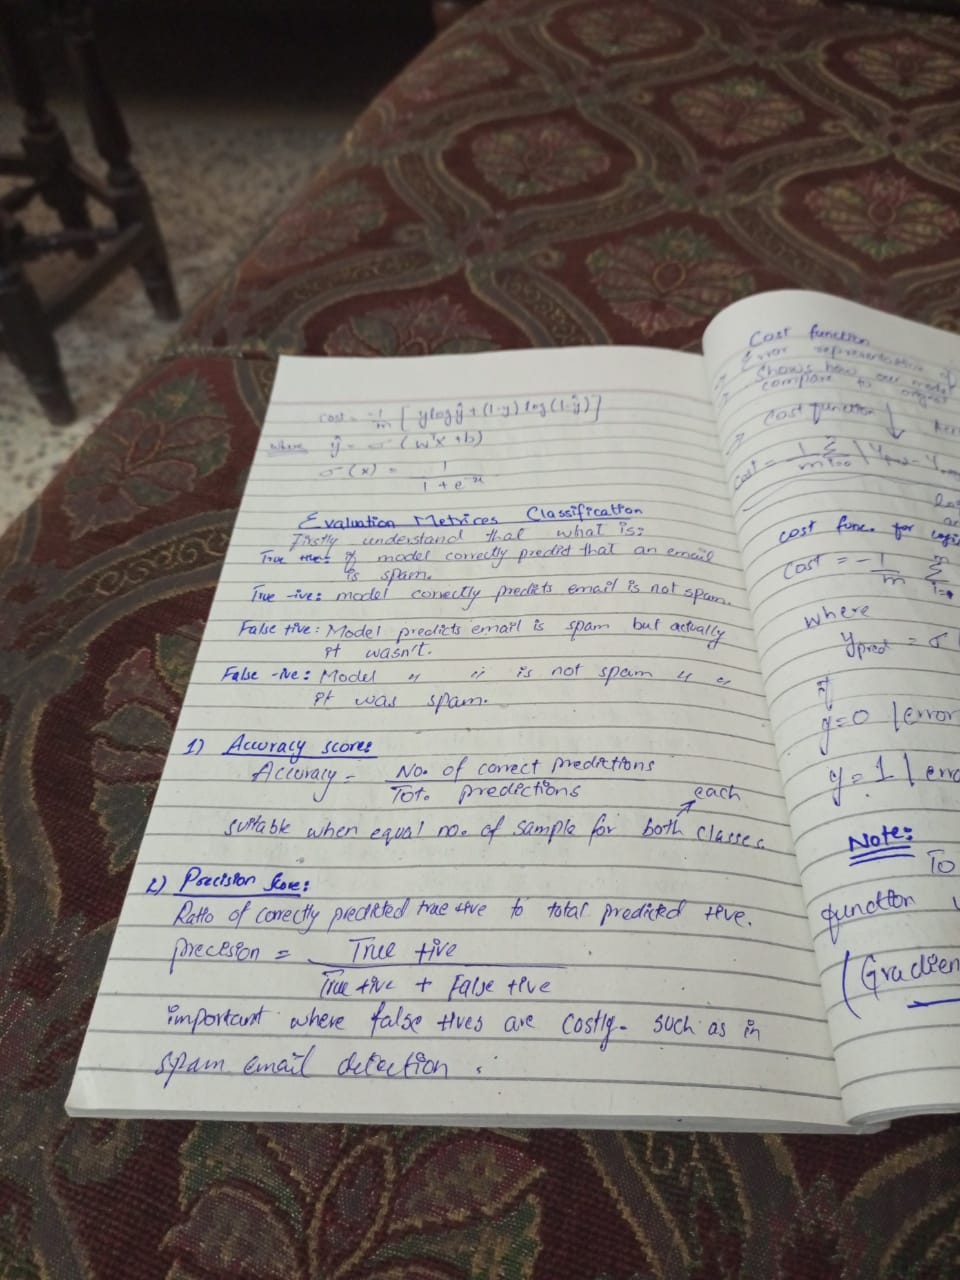 cost = -1/m [ylogŷ + (1-y) log(1-ŷ)]
where ŷ = σ(wᵀx + b)
σ(x) = 1 / 1 + e⁻ˣ
Evaluation Metrices Classification
Firstly understand that what is:
True +ive: if model correctly predict that an email
is spam.
True -ive: model correctly predicts email is not spam.
False +ive: Model predicts email is spam but actually
it wasn't.
False -ive: Model " " is not spam " "
it was spam.
1) Accuracy score:
Accuracy = No. of correct predictions / Tot. predictions
each
suitable when equal no. of sample for both classes.
2) Precision score:
Ratio of correctly predicted true +ive to total predicted +ive.
precision = True +ive / True +ive + False +ive
important where false +ives are costly. such as in
spam email detection.
Cost function
Error representation of
Shows how our model
compare to original
Cost function
cost = 1/m Σ
cost func. for
Cost = -1/m Σ
where
ypred = σ
if
y=0 | error
y=1 |
Note:
To
function
(Gradien